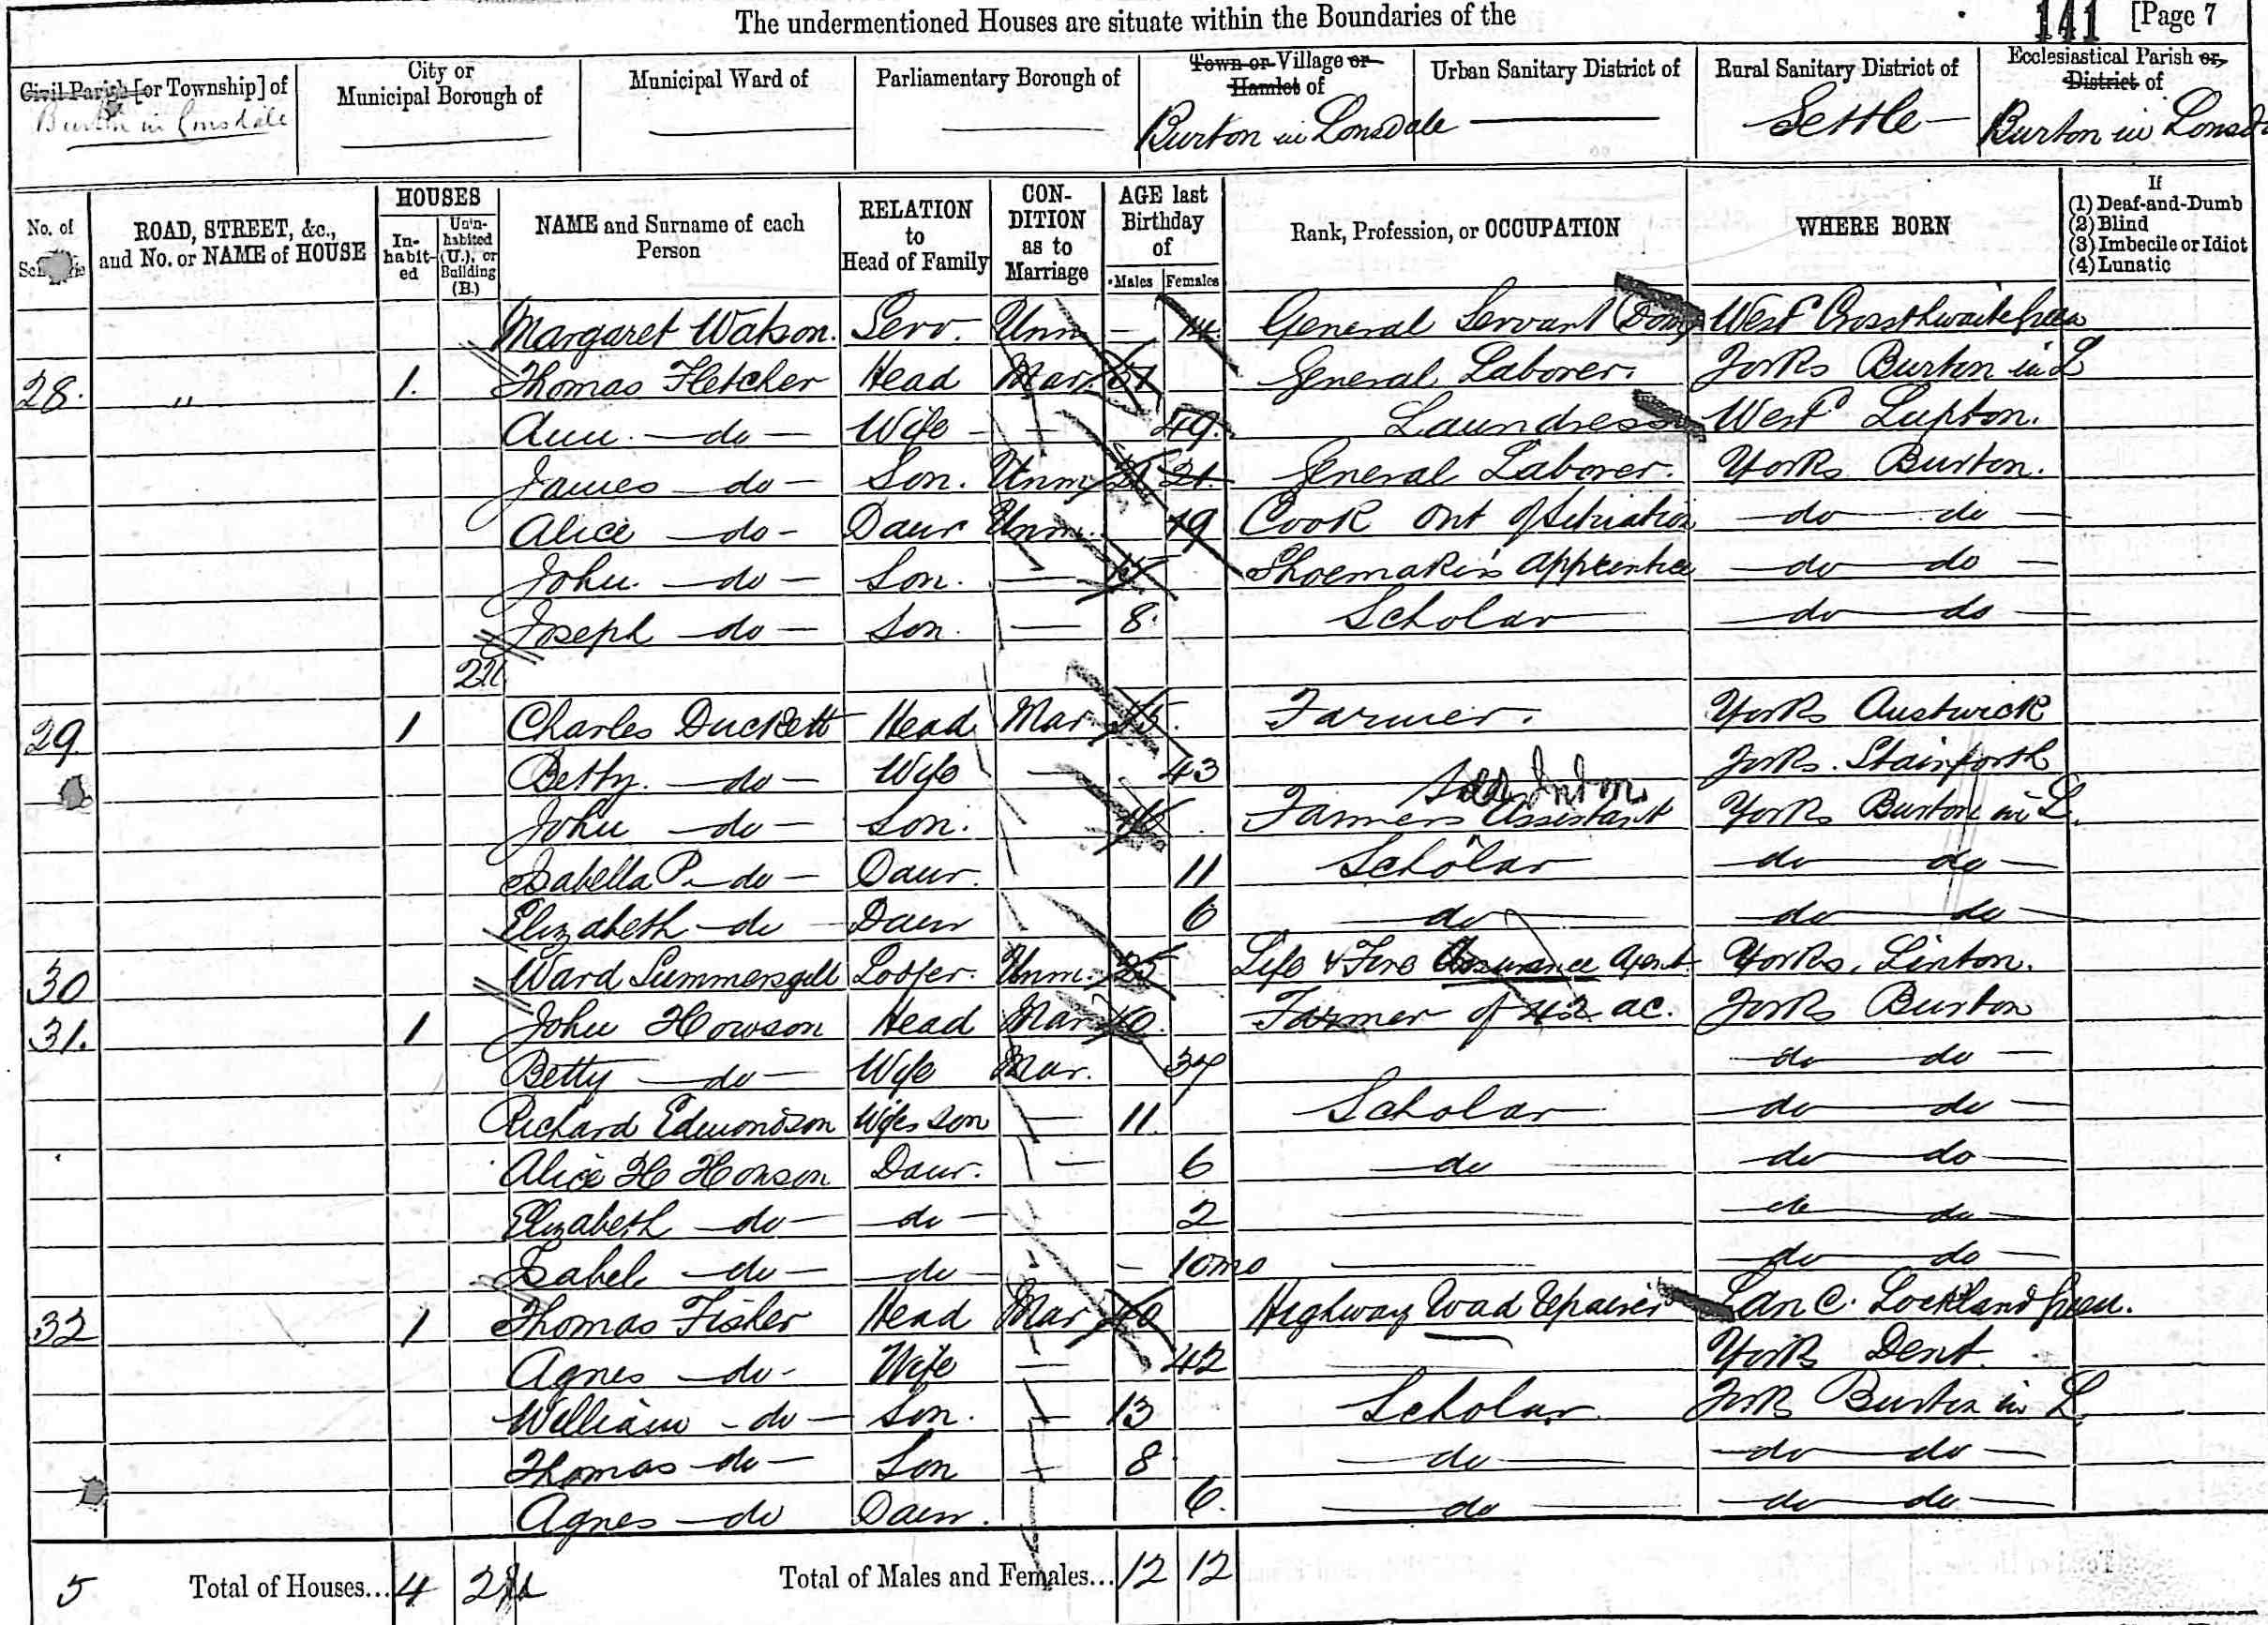 The undermentioned Houses are situate within the Boundaries of the
141 [Page 7
Civil Parish [or Township] of
Burton in Lonsdale
City or Municipal Borough of
Municipal Ward of
Parliamentary Borough of
Town or Village or Hamlet of
Burton in Lonsdale
Urban Sanitary District of
Rural Sanitary District of
Settle
Ecclesiastical Parish or District of
Burton in
No. of
ROAD, STREET, &c., and No. or NAME of HOUSE
HOUSES
In-habit-ed
Un'n-habited (U.), or Building (B.)
NAME and Surname of each Person
RELATION to Head of Family
CON-DITION as to Marriage
AGE last Birthday of
Males Females
Rank, Profession, or OCCUPATION
WHERE BORN
If
(1) Deaf-and-Dumb
(2) Blind
(3) Imbecile or Idiot
(4) Lunatic
Margaret Watson. Serv. Unm — 14 General Servant (Dom) West Crossthwaite Green
28. " 1. Thomas Fletcher Head Mar. 51 General Laborer. Yorks Burton in L
Ann — do — Wife — 49. Laundress West Lupton.
James — do — Son. Unm 21 21. General Laborer. Yorks Burton.
Alice — do — Daur Unm. 19 Cook Out of Situation — do — do —
John — do — Son. — Shoemaker's Apprentice — do — do —
Joseph — do — Son. — 8. Scholar — do — do —
2U
29 1 Charles Duckett Head Mar 45. Farmer. Yorks Austwick
Betty — do — Wife — 43 Yorks. Stainforth
John — do — Son. 16 Farmers Assistant Yorks Burton in L.
Isabella P. — do — Daur. 11 Scholar — do — do —
Elizabeth — do — Daur 6 — do — — do — do —
30 Ward Summersgill Lodger. Unm. 25 Life & Fire Assurance Agent. Yorks. Linton.
31. 1 John Howson Head Mar 40. Farmer of 42 ac. Yorks Burton
Betty — do — Wife Mar. 37 — do — do —
Richard Edmondson Wifes Son — 11. Scholar — do — do —
Alice H Howson Daur. — 6 — do — — do — do —
Elizabeth — do — — do — 2 — — do — do —
Isabel — do — — do — — 10mo — — do — do —
32 1 Thomas Fisher Head Mar 40 Highway Road Repairer Lanc. Lockland Green.
Agnes — do — Wife — 42 — York Dent.
William — do — Son. — 13 Scholar. York Burton in L
Thomas — do — Son — 8 — do — — do — do —
Agnes — do Daur. 6. — do — — do — do —
5 Total of Houses... 4 2U Total of Males and Females... 12 12